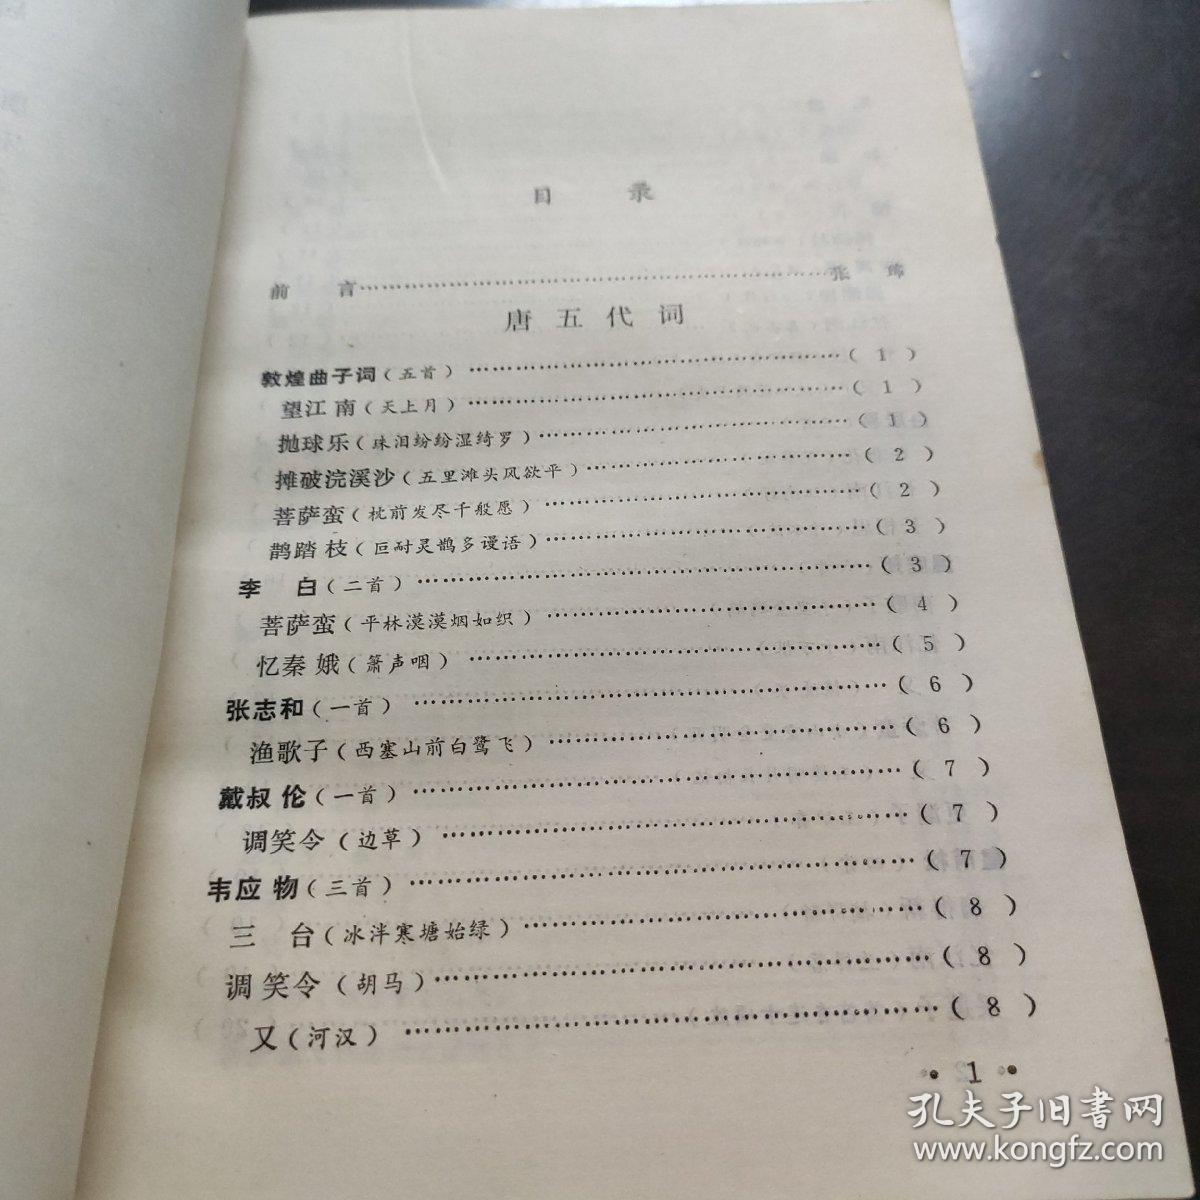 目 录
前 言……………………………………………………张 璋
唐五代词
敦煌曲子词(五首)……………………………………(1)
望江南(天上月)………………………………………(1)
抛球乐(珠泪纷纷湿绮罗)……………………………(1)
摊破浣溪沙(五里滩头风欲平)………………………(2)
菩萨蛮(枕前发尽千般愿)……………………………(2)
鹊踏枝(叵耐灵鹊多谩语)……………………………(3)
李 白(二首)…………………………………………(3)
菩萨蛮(平林漠漠烟如织)……………………………(4)
忆秦娥(箫声咽)………………………………………(5)
张志和(一首)…………………………………………(6)
渔歌子(西塞山前白鹭飞)……………………………(6)
戴叔伦(一首)…………………………………………(7)
调笑令(边草)…………………………………………(7)
韦应物(三首)…………………………………………(7)
三 台(冰泮寒塘始绿)………………………………(8)
调笑令(胡马)…………………………………………(8)
又(河汉)………………………………………………(8)
• 1 •
孔夫子旧书网
www.kongfz.com